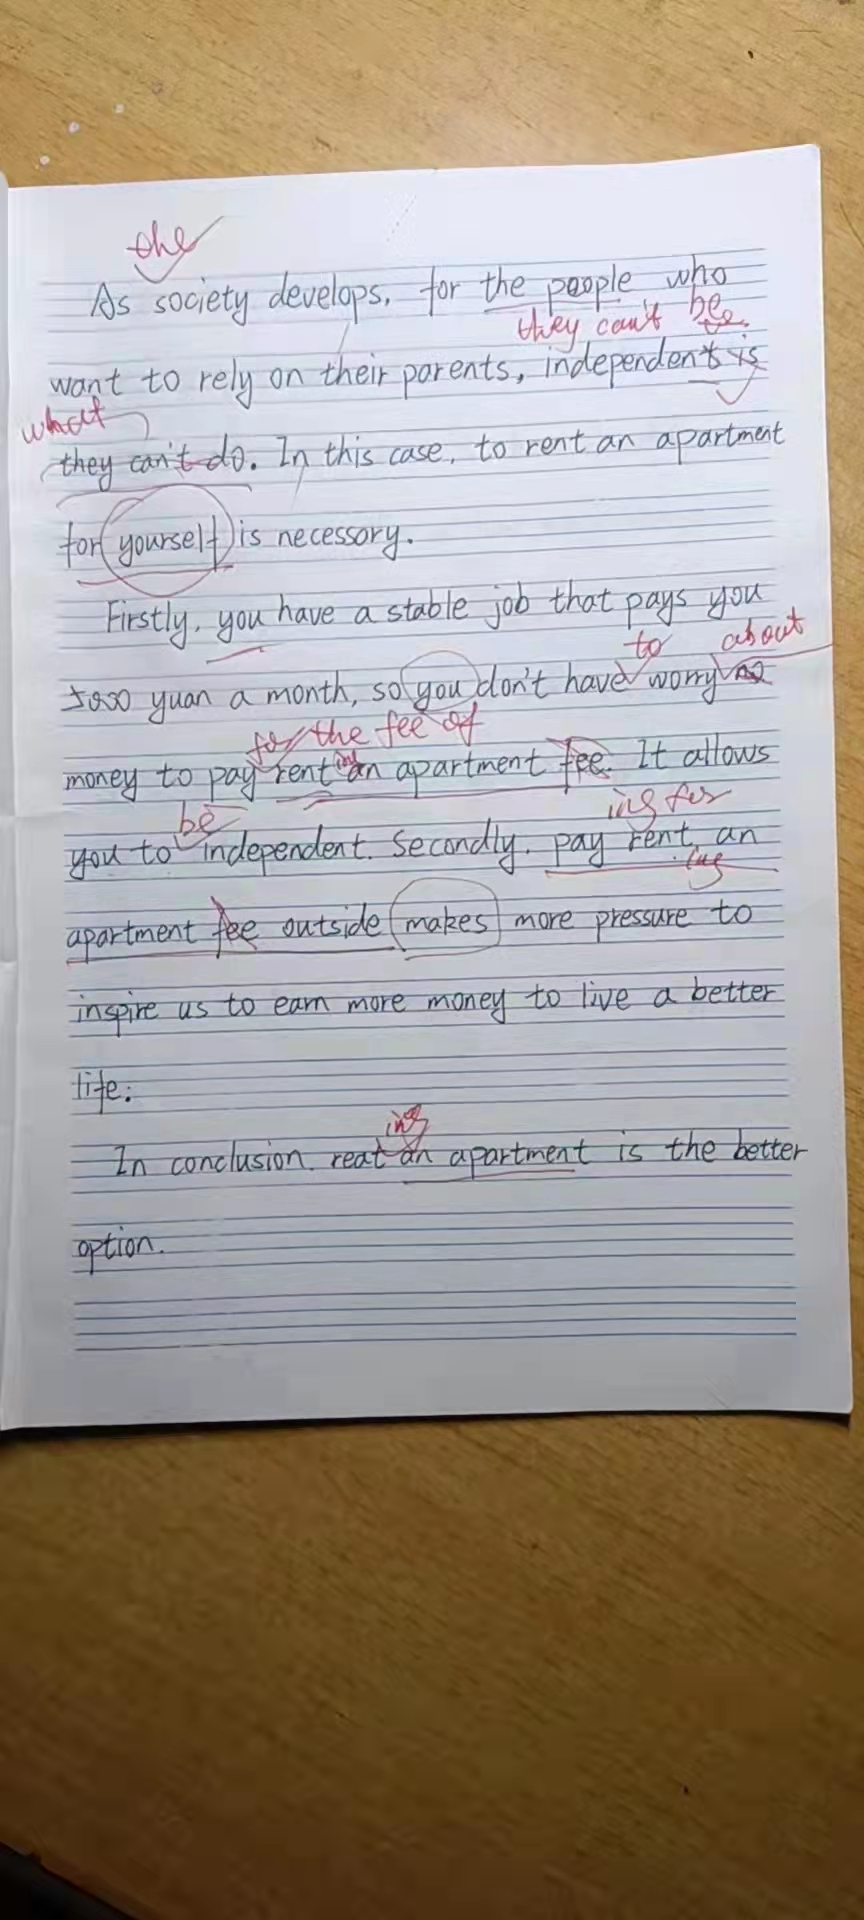 the
As society develops, for the people who
they can't be
want to rely on their parents, independent is
what
they can't do. In this case, to rent an apartment
for yourself is necessary.
Firstly, you have a stable job that pays you
to about
5000 yuan a month, so you don't have worry no
for the fee of
money to pay rent an apartment fee. It allows
be ing for
you to independent. Secondly, pay rent an
ing
apartment fee outside makes more pressure to
inspire us to earn more money to live a better
life.
ing
In conclusion, reat an apartment is the better
option.